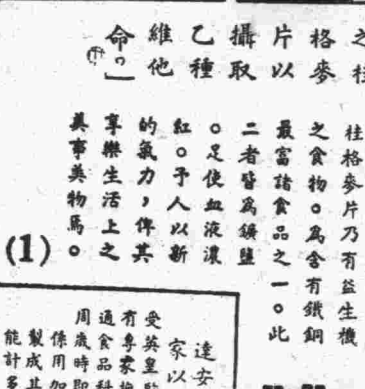 之桂
格麥
片以
攝取
乙種
維他
命。」
桂格麥片乃有益生機
之食物。爲含有鐵銅
最富諸食品之一。此
二者皆爲鑛鹽
。足使血液濃
紅。予人以新
的氣力，俾其
享樂生活上之
美事美物焉。
(1)
達安
家以
受英皇
有專家
通食品科
周歲時即
係用加
製成其
能計多